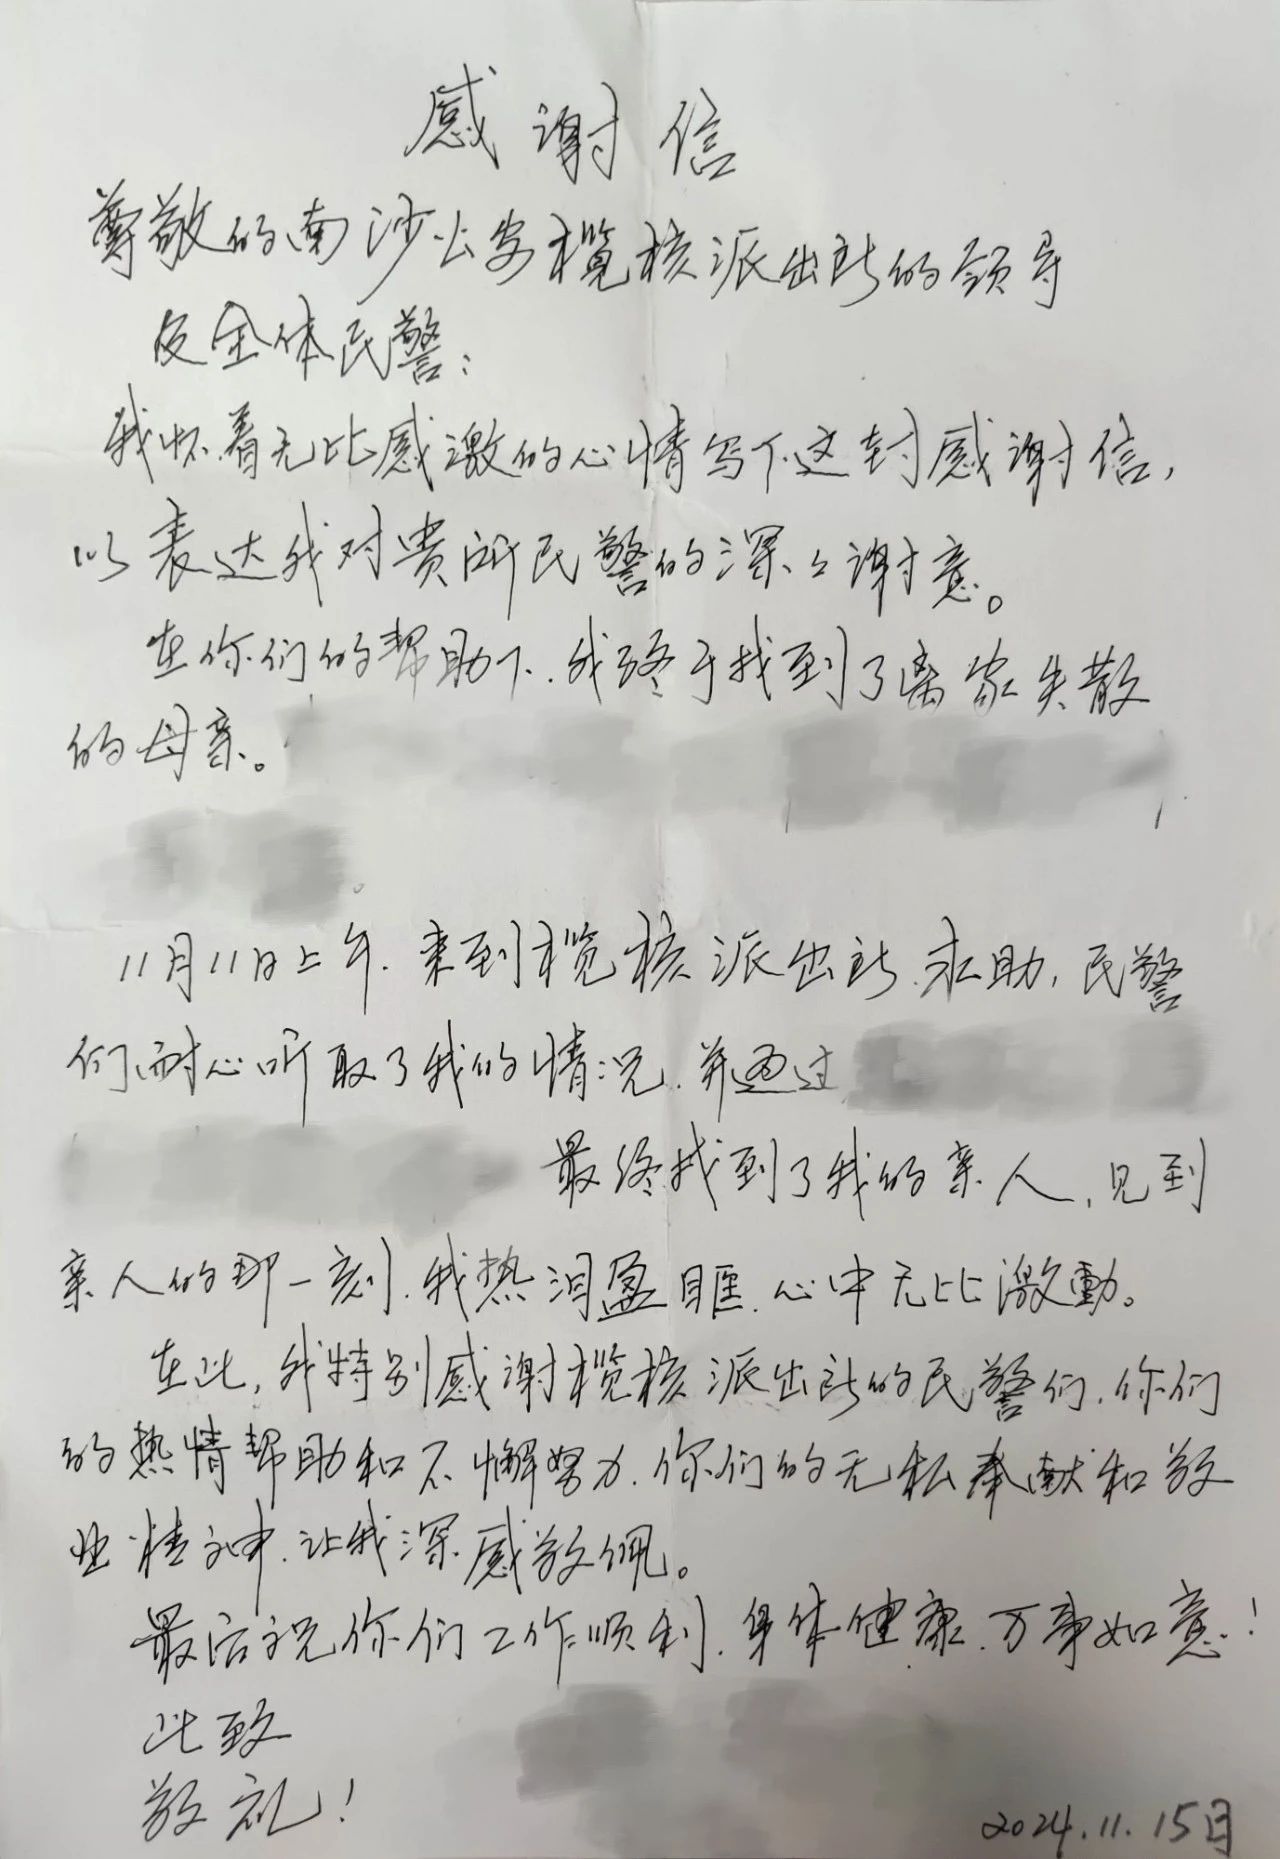 感谢信
尊敬的南沙公安榄核派出所的领导
及全体民警：
我怀着无比感激的心情写下这封感谢信，
以表达我对贵所民警的深深谢意。
在你们的帮助下，我终于找到了离家失散
的母亲。
11月11日上午，来到榄核派出所求助，民警
们耐心听取了我的情况，并通过
最终找到了我的亲人，见到
亲人的那一刻，我热泪盈眶，心中无比激動。
在此，我特别感谢榄核派出所的民警们，你们
的热情帮助和不懈努力，你们的无私奉献和敬
业精神，让我深感敬佩。
最后祝你们工作顺利，身体健康，万事如意！
此致
敬礼！
2024.11.15日